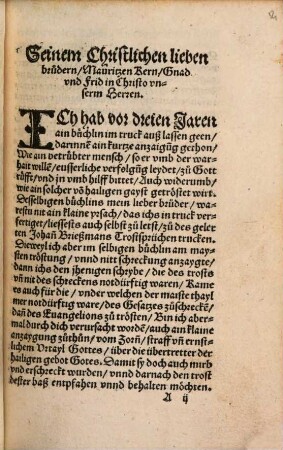 Seinem Christlichen lieben
brüdern/Maüritzen Kern/Gnad
vnd Frid in Christo vn-
serm Herren.
ICh hab vor dreien Jaren
ain büchlin im truck auß lassen geen/
darinnē ain kurtze anzaigūg gethon/
Wie ain betrübter mensch/so er vmb der war-
hait willē/eusserliche verfolgūg leydet/zů Gott
růfft/vnd in vmb hilff bittet/Auch widerumb/
wie ain solcher vō hailigen gayst getröstet wirt.
Desselbigen büchlins mein lieber brůder/wa-
restu nit ain klaine vrsach/das ichs in truck ver-
fertiget/liessests auch selbst zů letst/zů des geler
ten Johañ Brießmans Trostsprüchen trucken.
Dieweyl ich aber im selbigen büchlin am may-
sten tröstung/vnnd nitt schreckung anzaygte/
dann ichs den jhenigen schrybe/die des trosts
vñ nit des schreckens notdürftig waren/Kame
es auch für die/vnder welchen der maiste thayl
mer notdürftig ware/des Gesatzes zůschreckē/
dañ des Euangelions zů trösten/Bin ich aber-
mal durch dich verursacht wordē/auch ain klaine
anzaygung zůthůn/vom Zorn/straff vñ ernst-
lichem Vrtayl Gottes/über die übertretter der
hailigen gebot Gotes. Damit sy doch auch mürb
vnd erschreckt wurden/vnnd darnach den trost
dester baß entpfahen vnnd behalten möchten.
A ij